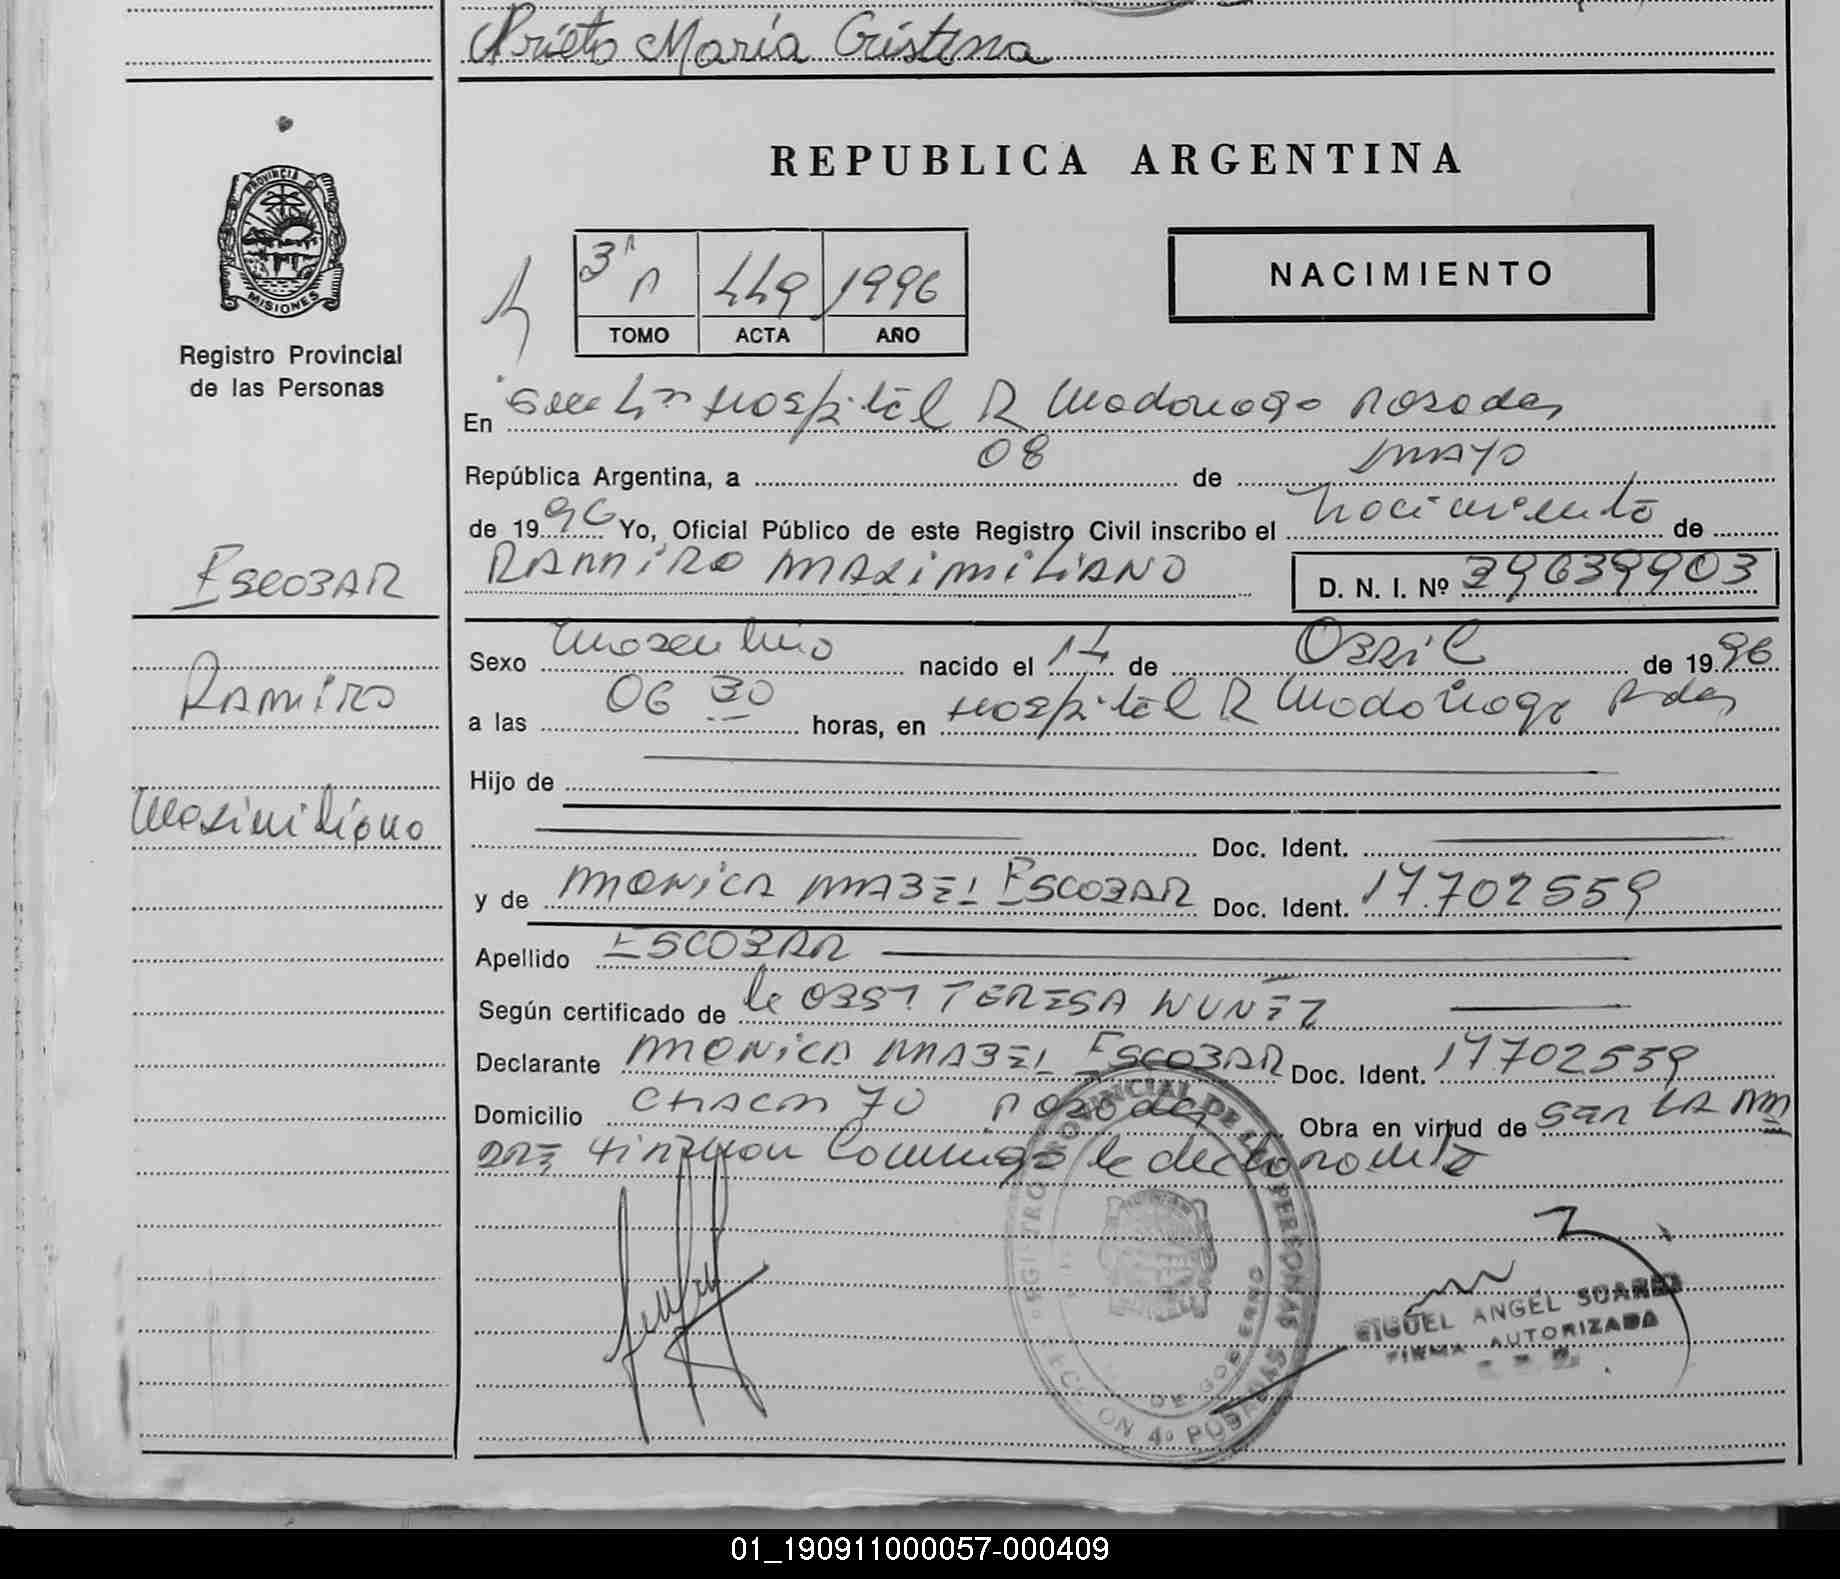 Prieto María Cristina
PROVINCIA DE
MISIONES
Registro Provincial
de las Personas
REPUBLICA ARGENTINA
3ª A 449 1996
TOMO ACTA AÑO
NACIMIENTO
En Hospital R Madariaga Posadas
República Argentina, a 08 de mayo
de 1996 Yo, Oficial Público de este Registro Civil inscribo el nacimiento de
ESCOBAR
RAMIRO MAXIMILIANO D. N. I. Nº 39639903
Sexo masculino nacido el 14 de ABRIL de 1996
Ramiro
a las 06 30 horas, en Hospital R Madariaga Pdas
Hijo de
Maximiliano
Doc. Ident.
y de MONICA MABEL ESCOBAR Doc. Ident. 17.702559
Apellido ESCOBAR
Según certificado de la OBST TERESA NUÑEZ
Declarante MONICA MABEL ESCOBAR Doc. Ident. 17.702559
Domicilio CHACRA 70 Posadas Obra en virtud de ser LA MA
DRE firman conmigo la declarante
REGISTRO PROVINCIAL DE LAS PERSONAS
DE GOBIERNO
4º POSADAS
MIGUEL ANGEL SUAREZ
FIRMA AUTORIZADA
01_190911000057-000409